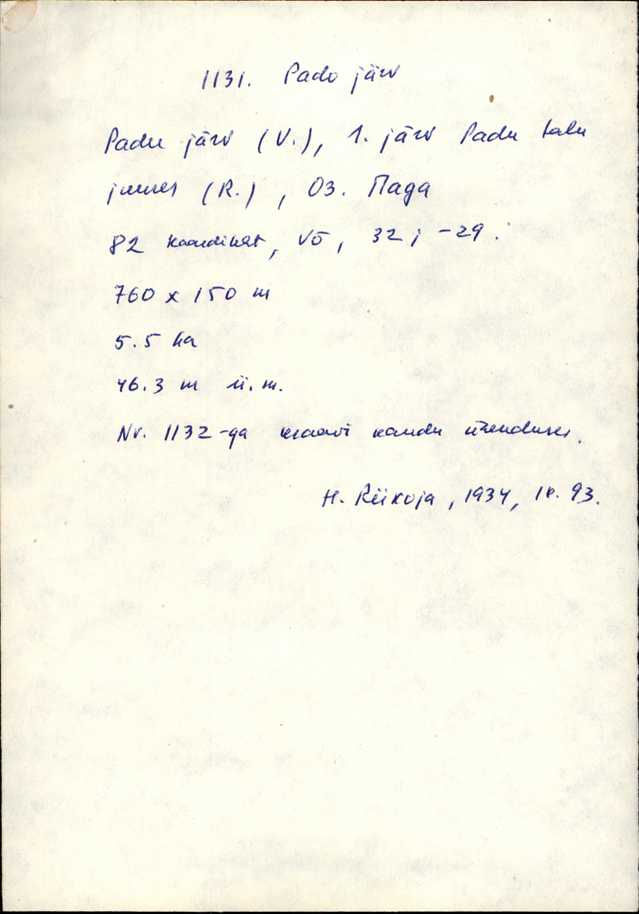 1131. Pado järv
Padu järv (V.), 1. järv Padu talu
juures (R.), Оз. Пага
82 koordinat, Võ, 32; -29.
760 x 150 m
5.5 ha
46.3 m ü.m.
Nr. 1132-ga kraavi kaudu ühenduses.
H. Riikoja, 1934, lk. 93.